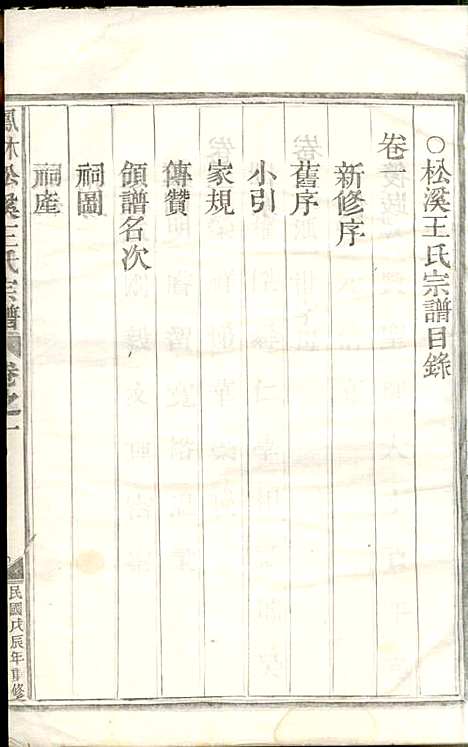 ○松溪王氏宗譜目錄
卷一
新修序
舊序
小引
家規
傳贊
領譜名次
祠圖
祠產
鳳林松溪王氏宗譜
卷之一
民國戊辰年重修